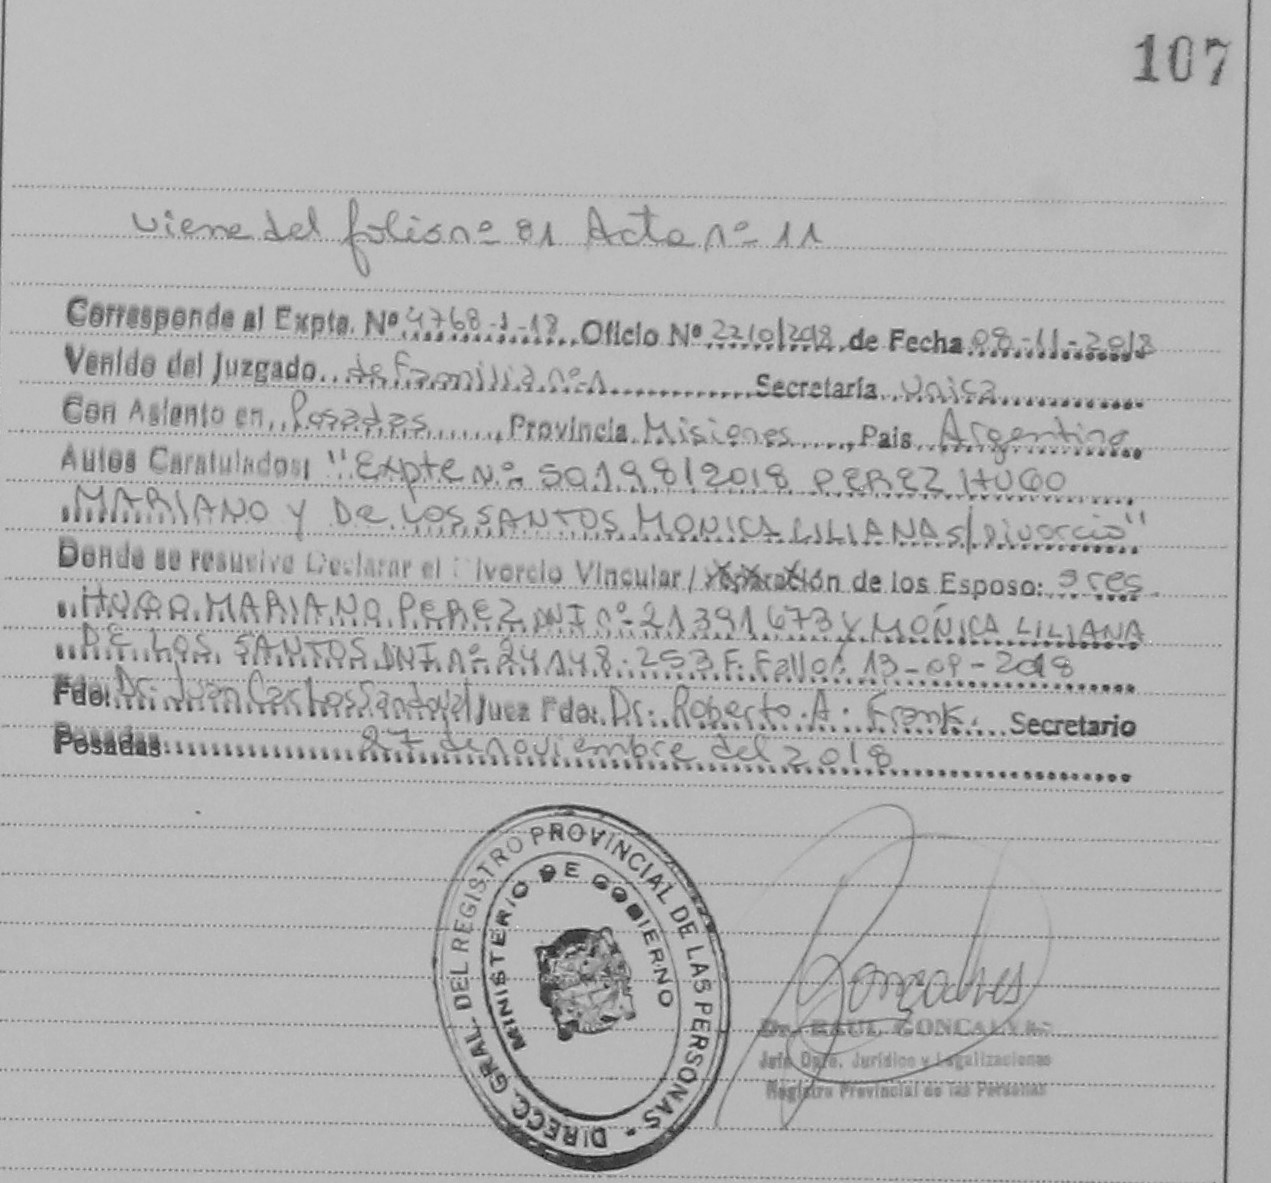 107
viene del folio nº 81 Acta nº 11
Corresponde al Expte. Nº 4768-J-18 Oficio Nº 2210/2018 de Fecha 08-11-2018
Venido del Juzgado de Familia nº 1 Secretaría Unica
Con Asiento en Posadas, Provincia Misiones, Pais Argentina
Autos Caratulados: "Expte Nº 50198/2018 PEREZ HUGO
MARIANO Y DE LOS SANTOS MONICA LILIANA s/Divorcio"
Donde se resuelve Declarar el Divorcio Vincular / Separación de los Esposo: sres
HUGO MARIANO PEREZ DNI nº 21391673 y MÓNICA LILIANA
DE LOS SANTOS DNI nº 24.148.253 F. Fallo: 13-09-2018
Fdo: Dr. Juan Carlos Sandoval Juez Fdo: Dr. Roberto A. Frank Secretario
Posadas 27 de noviembre del 2018
DIRECC. GRAL. DEL REGISTRO PROVINCIAL DE LAS PERSONAS -
MINISTERIO DE GOBIERNO
Goncalves
Dr. RAUL GONCALVES
Jefe Dpto. Jurídico y Legalizaciones
Registro Provincial de las Personas